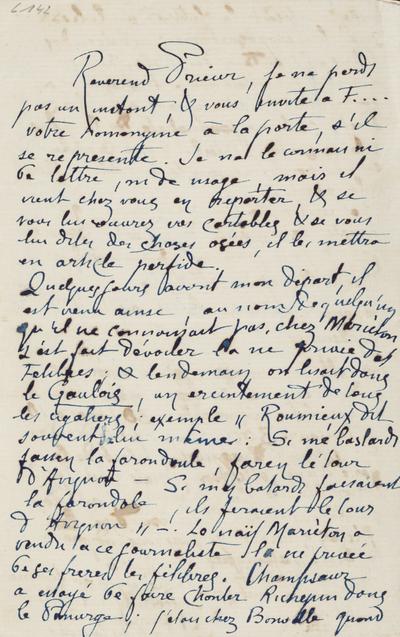 Reverend Prieur, Je ne perds
pas un instant, & vous invite a F....
votre homonyme à la porte, s'il
se represente. Je ne le connais ni
de lettre, ni de usage, mais il
vient chez vous en reporter, & se
vous lui ouvrez vos cartables & se vous
lui dites des choses osées, il les mettra
en article perfide.
Quelques jours avant mon départ il
est venu ainsi, au nom de quelqu'un
qu'il ne connaissait pas, chez Mariéton
s'est fait dévoiler la vie privée des
Felibres; & lendemain on lisait dans
le Gaulois, un ereintement de tous
les cigaliers: exemple « Roumieux dit
souvent lui même: Si mé bastards
fasien la farondoule, farien lé tour
d'Avignoun — Si mes batards faisaient
la farandole, ils feraient le tour
d'Avignon » —. Le naïf Mariéton a
vendu a ce journaliste la vie privée
de ses freres les félibres. Champsaur
a essayé de faire chanter Richepin dans
le Panurge: j'étais chez quand